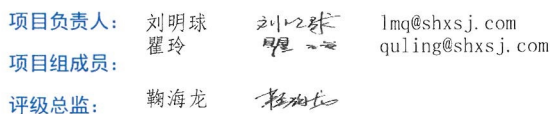 项目负责人： 刘明球 刘明球 lmq@shxsj.com
瞿玲 瞿玲 quling@shxsj.com
项目组成员：
评级总监： 鞠海龙 鞠海龙